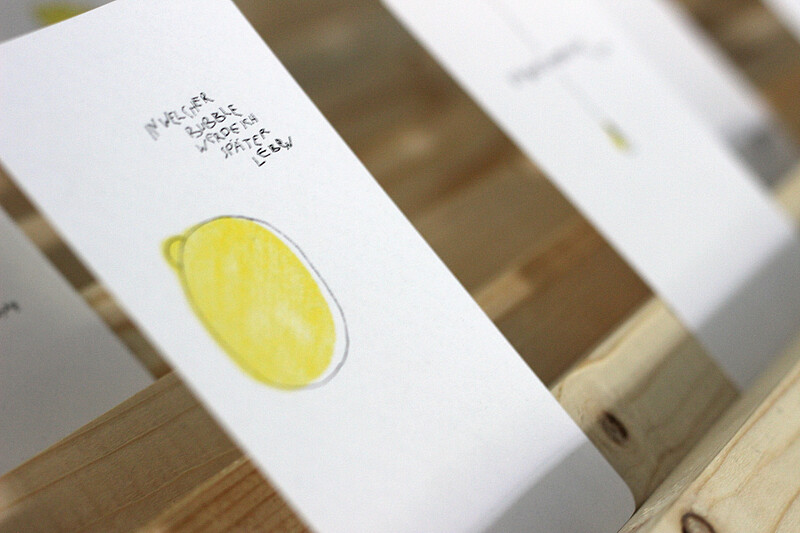 IN WELCHER
BUBBLE
WERDE ICH
SPÄTER
LEBEN